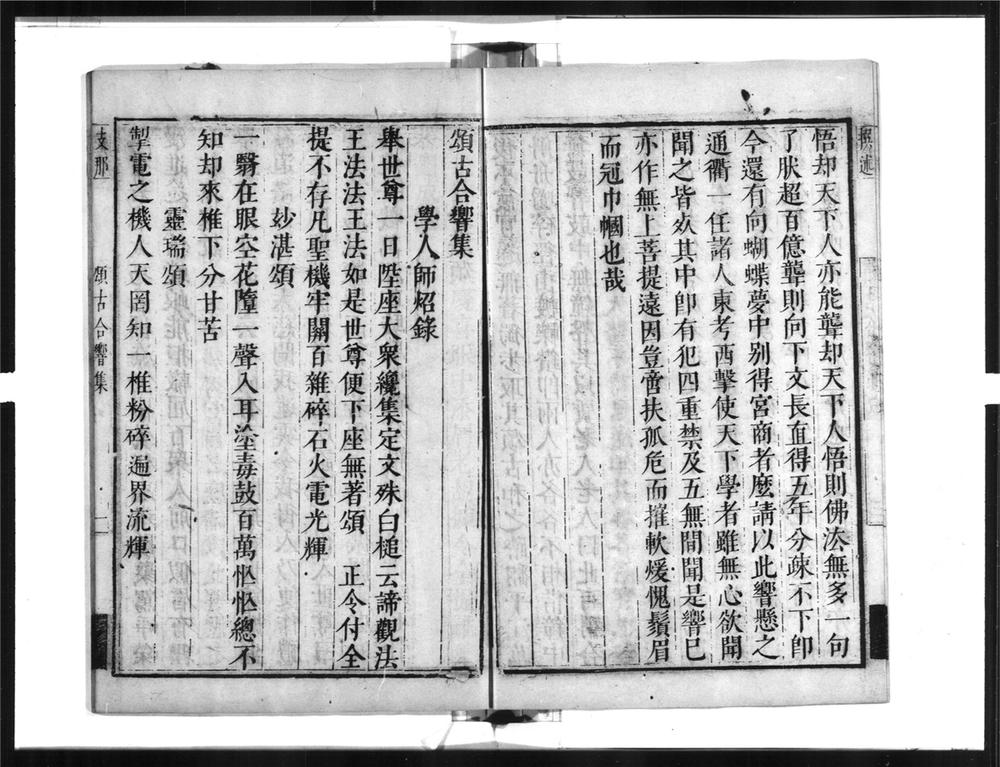 撰述
悟却天下人亦能聾却天下人悟則佛法無多一句
了肰超百億聾則向下文長直得五年分疎不下卽
今還有向蝴蝶夢中別得宮商者麼請以此響懸之
通衢一任諸人東考西擊使天下學者雖無心欲聞
聞之皆死其中卽有犯四重禁及五無間聞是響巳
亦作無上菩提遠因豈啻扶孤危而摧軟煖愧鬚眉
而冠巾幗也哉
頌古合響集
學人師炤錄
舉世尊一日陞座大衆纔集定文殊白槌云諦觀法
王法法王法如是世尊便下座無著頌 正令付全
提不存凡聖機牢關百雜碎石火電光輝
妙湛頌
一翳在眼空花墮一聲入耳塗毒鼓百萬怄怄總不
知却來椎下分甘苦
靈瑞頌
掣電之機人天罔知一椎粉碎遍界流輝
支那
頌古合響集
一